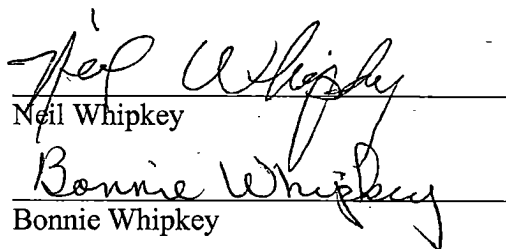 Neil Whipkey
Neil Whipkey
Bonnie Whipkey
Bonnie Whipkey